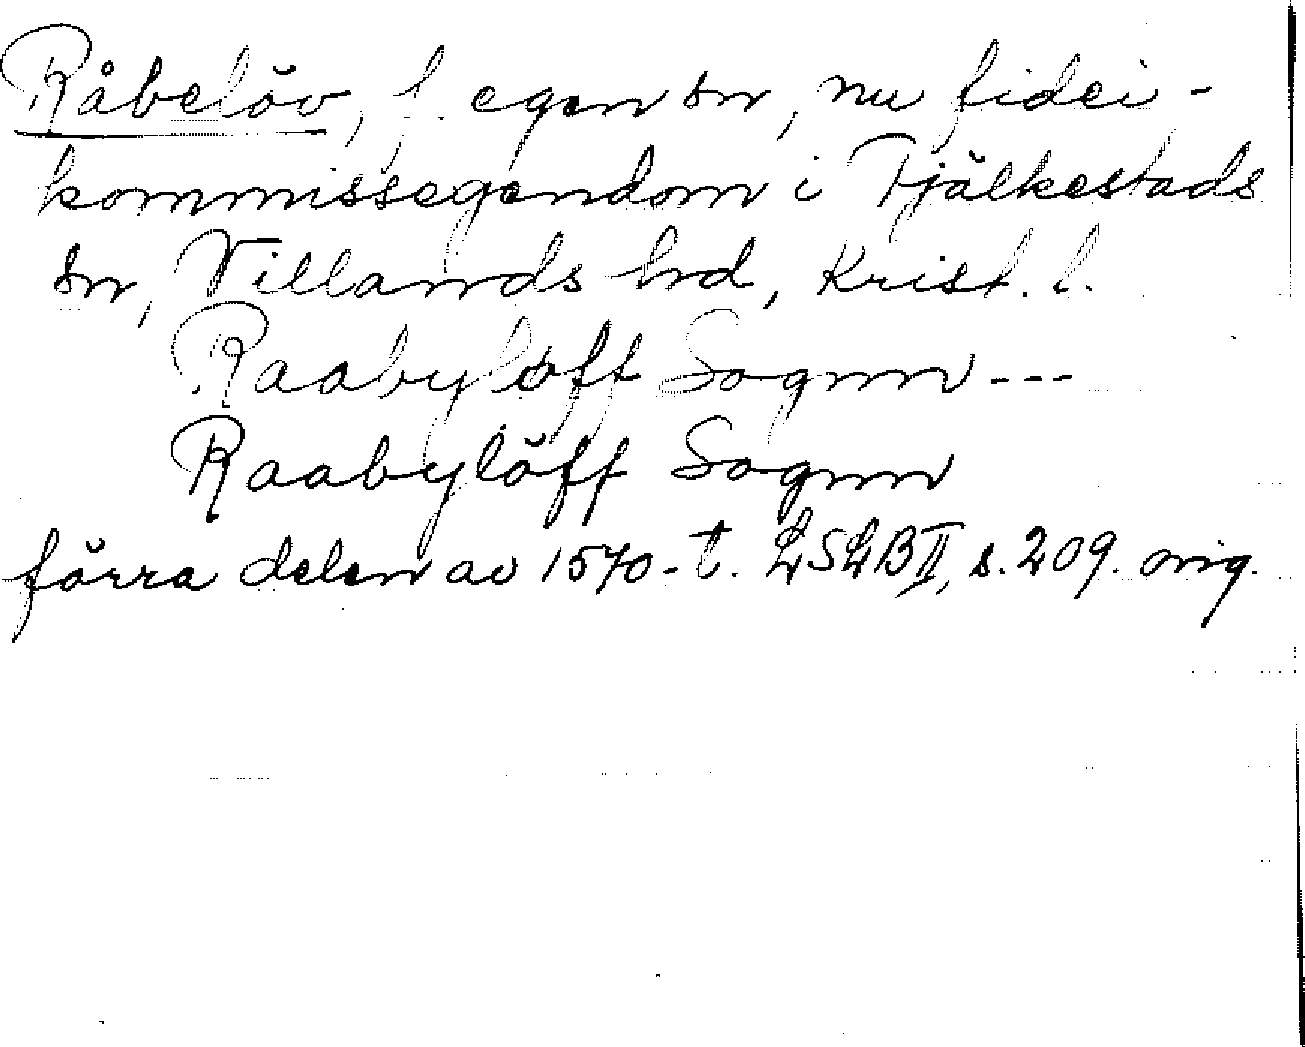 Råbelöv, f. egen sn, nu fidei-
kommissegendom i Fjälkestads
sn, Villands hd, Krist. l.
Raabyløff Sognn ---
Raabylöff Sognn
förra delen av 1570-t. LSLB II, s. 209. orig.